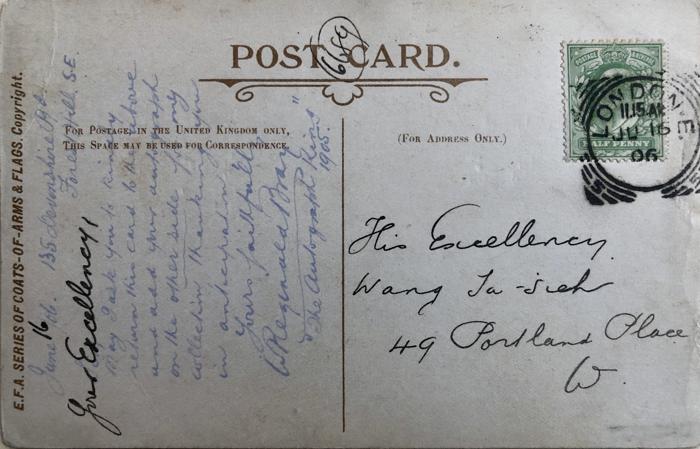 POST CARD.
6689
FOR POSTAGE IN THE UNITED KINGDOM ONLY,
THIS SPACE MAY BE USED FOR CORRESPONDENCE.
(FOR ADDRESS ONLY.)
E.F.A. SERIES OF COATS-OF-ARMS & FLAGS. Copyright.
135 Devonshire Rd.
Forest Hill, S.E.
June 16th.
Your Excellency,
May I ask you to kindly
return this card to the above
and add your autograph
on the other side for my
collection thanking you
in anticipation
Yours faithfully
W Reginald Bray
"The Autograph King"
1905.
LONDON. E.
11.15 AM
JU 16
06
HALF PENNY
His Excellency
Wang Ta-sieh
49 Portland Place
W.